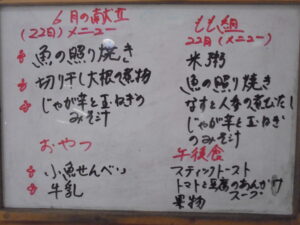 6月の献立
(22日)メニュー
魚の照り焼き
切り干し大根の煮物
じゃが芋と玉ねぎの
みそ汁
おやつ
小魚せんべい
牛乳
もも組
22日(メニュー)
米粥
魚の照り焼き
なすと人参の煮立だし
じゃが芋と玉ねぎ
のみそ汁
午後食
スティックトースト
トマトと豆腐のあんかけ
スープ
果物